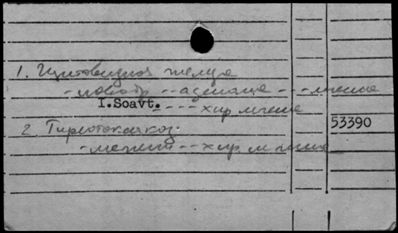 1. Щитовидная железа
- новообр -- аденома ---- лечение
I.Soavt. ---- хир лечение
53390
2 Тиреотоксикоз.
- лечение --- хир лечение